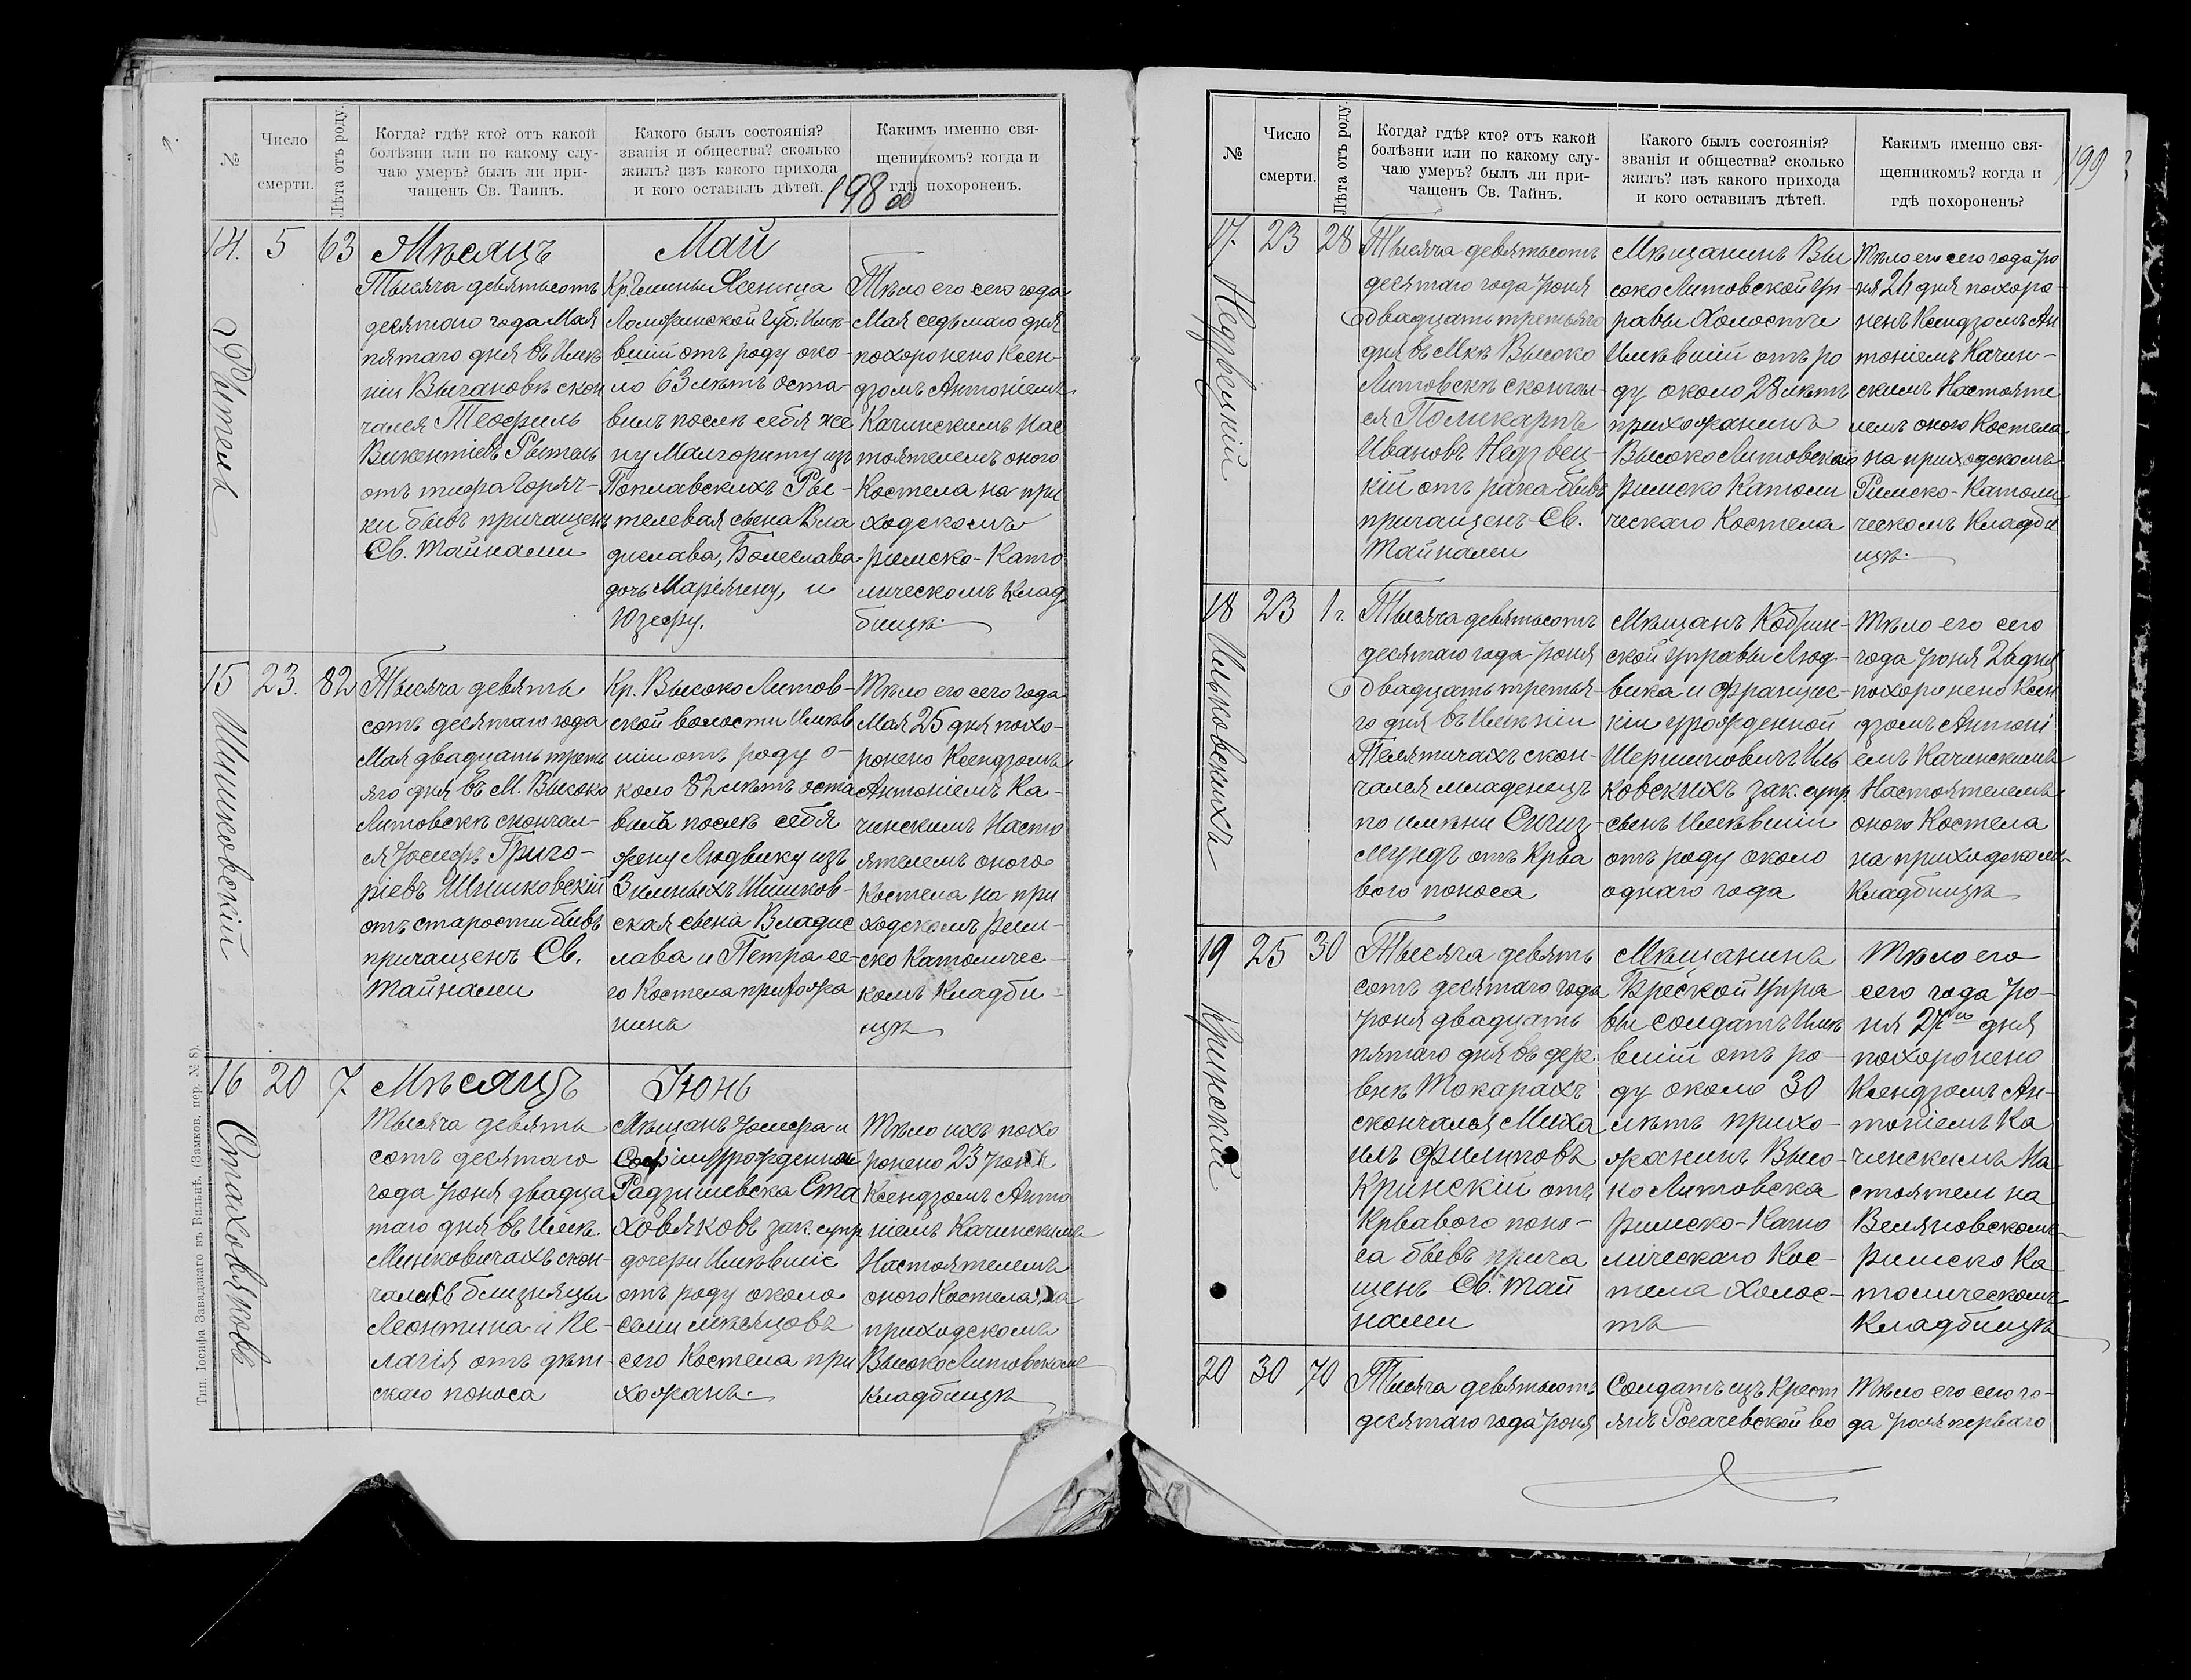 №
Число
смерти.
Лѣта отъ роду.
Когда? гдѣ? кто? отъ какой
болѣзни или по какому слу-
чаю умеръ? былъ ли при-
чащенъ Св. Таинъ.
Какого былъ состоянія?
званія и общества? сколько
жилъ? изъ какого прихода
и кого оставилъ дѣтей.
Какимъ именно свя-
щенникомъ? когда и
гдѣ похороненъ.
198
14.
5
63
Рытель
Мѣсяцъ
Тысяча девятьсотъ
десятаго года Мая
пятаго дня въ Имѣ
ніи Вычановѣ скон
чался Теофиль
Викентіевъ Рытель
отъ тифа Горяч-
ки бывъ причащенъ
Св. Тайнами
Май
Кр. Гмины Ясеница
Ломжинской Губ: Имѣ-
вшій отъ роду око-
ло 63 лѣтъ оста-
вилъ послѣ себя же
ну Малгориту изъ
Поплавскихъ Ры-
телевая сына Вла
дислава, Болеслава
дочь Маріянну, и
Юзефу.
Тѣло его сего года
Мая седьмаго дня
похоронено Ксен-
дзомъ Антоніемъ
Качинскимъ Нас
тоятелемъ оного
Костела на при
ходскомъ
римско-Като
лическомъ Клад
бищѣ.
15
23.
82
Шишковскій
Тысяча девять
сотъ десятаго года
Мая двадцать треть
яго дня въ М. Высоко
Литовскѣ скончал-
ся Іосифъ Григо-
ріевъ Шишковскій
отъ старости бывъ
причащенъ Св.
Тайнами
Кр. Высоко Литов-
ской волости Имѣв
шій отъ роду о-
коло 82 лѣтъ оста
вилъ послѣ себя
жену Людвику изъ
Зимныхъ Шишков-
ская сына Владис
лава и Петра се-
го Костела прихожа
нинъ
Тѣло его сего года
Мая 25 дня похо-
ронено Ксендзомъ
Антоніемъ Ка-
чинскимъ Насто
ятелемъ оного
Костела на при
ходскомъ рим-
ско Католичес-
комъ Кладби-
щѣ
16
20
7
Стаховяковъ
Мѣсяцъ
Тысяча девять
сотъ десятаго
года Іюня двадца
таго дня въ Имѣ.
Минковичахъ скон-
чались близняцы
Леонтина и Пе-
лагія отъ дѣт-
скаго поноса
Іюнь
Мѣщанъ Іосифа и
Софіи урожденной
Радзишевска Ста
ховяковъ зак. супр
дочери Имѣвшіе
отъ роду около
семи мѣсяцовъ
сего Костела при
хожанъ.
Тѣло ихъ похо
ронено 23 Іюня
Ксендзомъ Анто
ніемъ Качинскимъ
Настоятелемъ
оного Костела на
приходскомъ
Высоко Литовскомъ
кладбищѣ
Тип. Іосифа Завадзкаго въ Вильнѣ. (Замков. пер. № 8).
199
№
Число
смерти.
Лѣта отъ роду
Когда? гдѣ? кто? отъ какой
болѣзни или по какому слу-
чаю умеръ? былъ ли при-
чащенъ Св. Тайнъ.
Какого былъ состоянія?
званія и общества? сколько
жилъ? изъ какого прихода
и кого оставилъ дѣтей.
Какимъ именно свя-
щенникомъ? когда и
гдѣ похороненъ?
17.
23
28
Недзвецкій
Тысяча девятьсотъ
десятаго года Іюня
двадцать третьяго
дня въ Мкѣ Высоко
Литовскѣ скончал-
ся Поликарпъ
Ивановъ Недзвец-
кій отъ рака бывъ
причащенъ Св.
Тайнами
Мѣщанинъ Вы
соко Литовской Уп
равы Холостъ
Имѣвшій отъ ро
ду около 28 лѣтъ
прихожанинъ
Высоко Литовскаго
римско Католи
ческаго Костела
Тѣло его сего года Ію
ня 24 дня похоро-
ненъ Ксендзомъ Ан
тоніемъ Качин-
скимъ Настояте
лемъ оного Костела
на приходскомъ
Римско-Католи
ческомъ Кладби
щѣ.
18
23
1 г.
Ильковскихъ
Тысяча девятьсотъ
десятаго года Іюня
двадцать третья-
го дня въ Имѣніи
Телятичахъ скон-
чался младенецъ
по имени Сигиз-
мундъ отъ Крва
вого поноса
Мѣщанъ Кобрин-
ской Управы Люд-
вика и Францис-
кіи урожденной
Шершиновичъ Иль
ковскихъ зак. супр.
сынъ Имѣвшій
отъ роду около
однаго года
Тѣло его сего
года Іюня 26 дня
похоронено Ксен
дзомъ Антоні
емъ Качинскимъ
Настоятелемъ
оного Костела
на приходскомъ
Кладбищѣ
19
25
30
Кринскій
Тысяча девять
сотъ десятаго года
Іюня двадцать
пятаго дня въ дер.
внѣ Токарахъ
скончался Миха
илъ Филиповъ
Кринскій отъ
Крваваго поно-
са бывъ прича
щенъ Св. Тай
нами
Мѣщанинъ
Бреской Упра
вы солдатъ Имѣ
вшій отъ ро-
ду около 30
лѣтъ прихо-
жанинъ Высо-
ко Литовска
римско-Като
лическаго Кос-
тела Холос-
тъ
Тѣло его
сего года Ію-
ня 27го дня
похоронено
Ксендзомъ Ан-
тоніемъ Ка
чинскимъ На-
стоятель на
Велановскомъ
римско Ка-
толическомъ
Кладбищѣ
20
30
70
Тысяча девятьсотъ
десятаго года Іюня
Солдатъ изъ Крест
янъ Рогачевской во
Тѣло его сего го-
да Іюля перваго